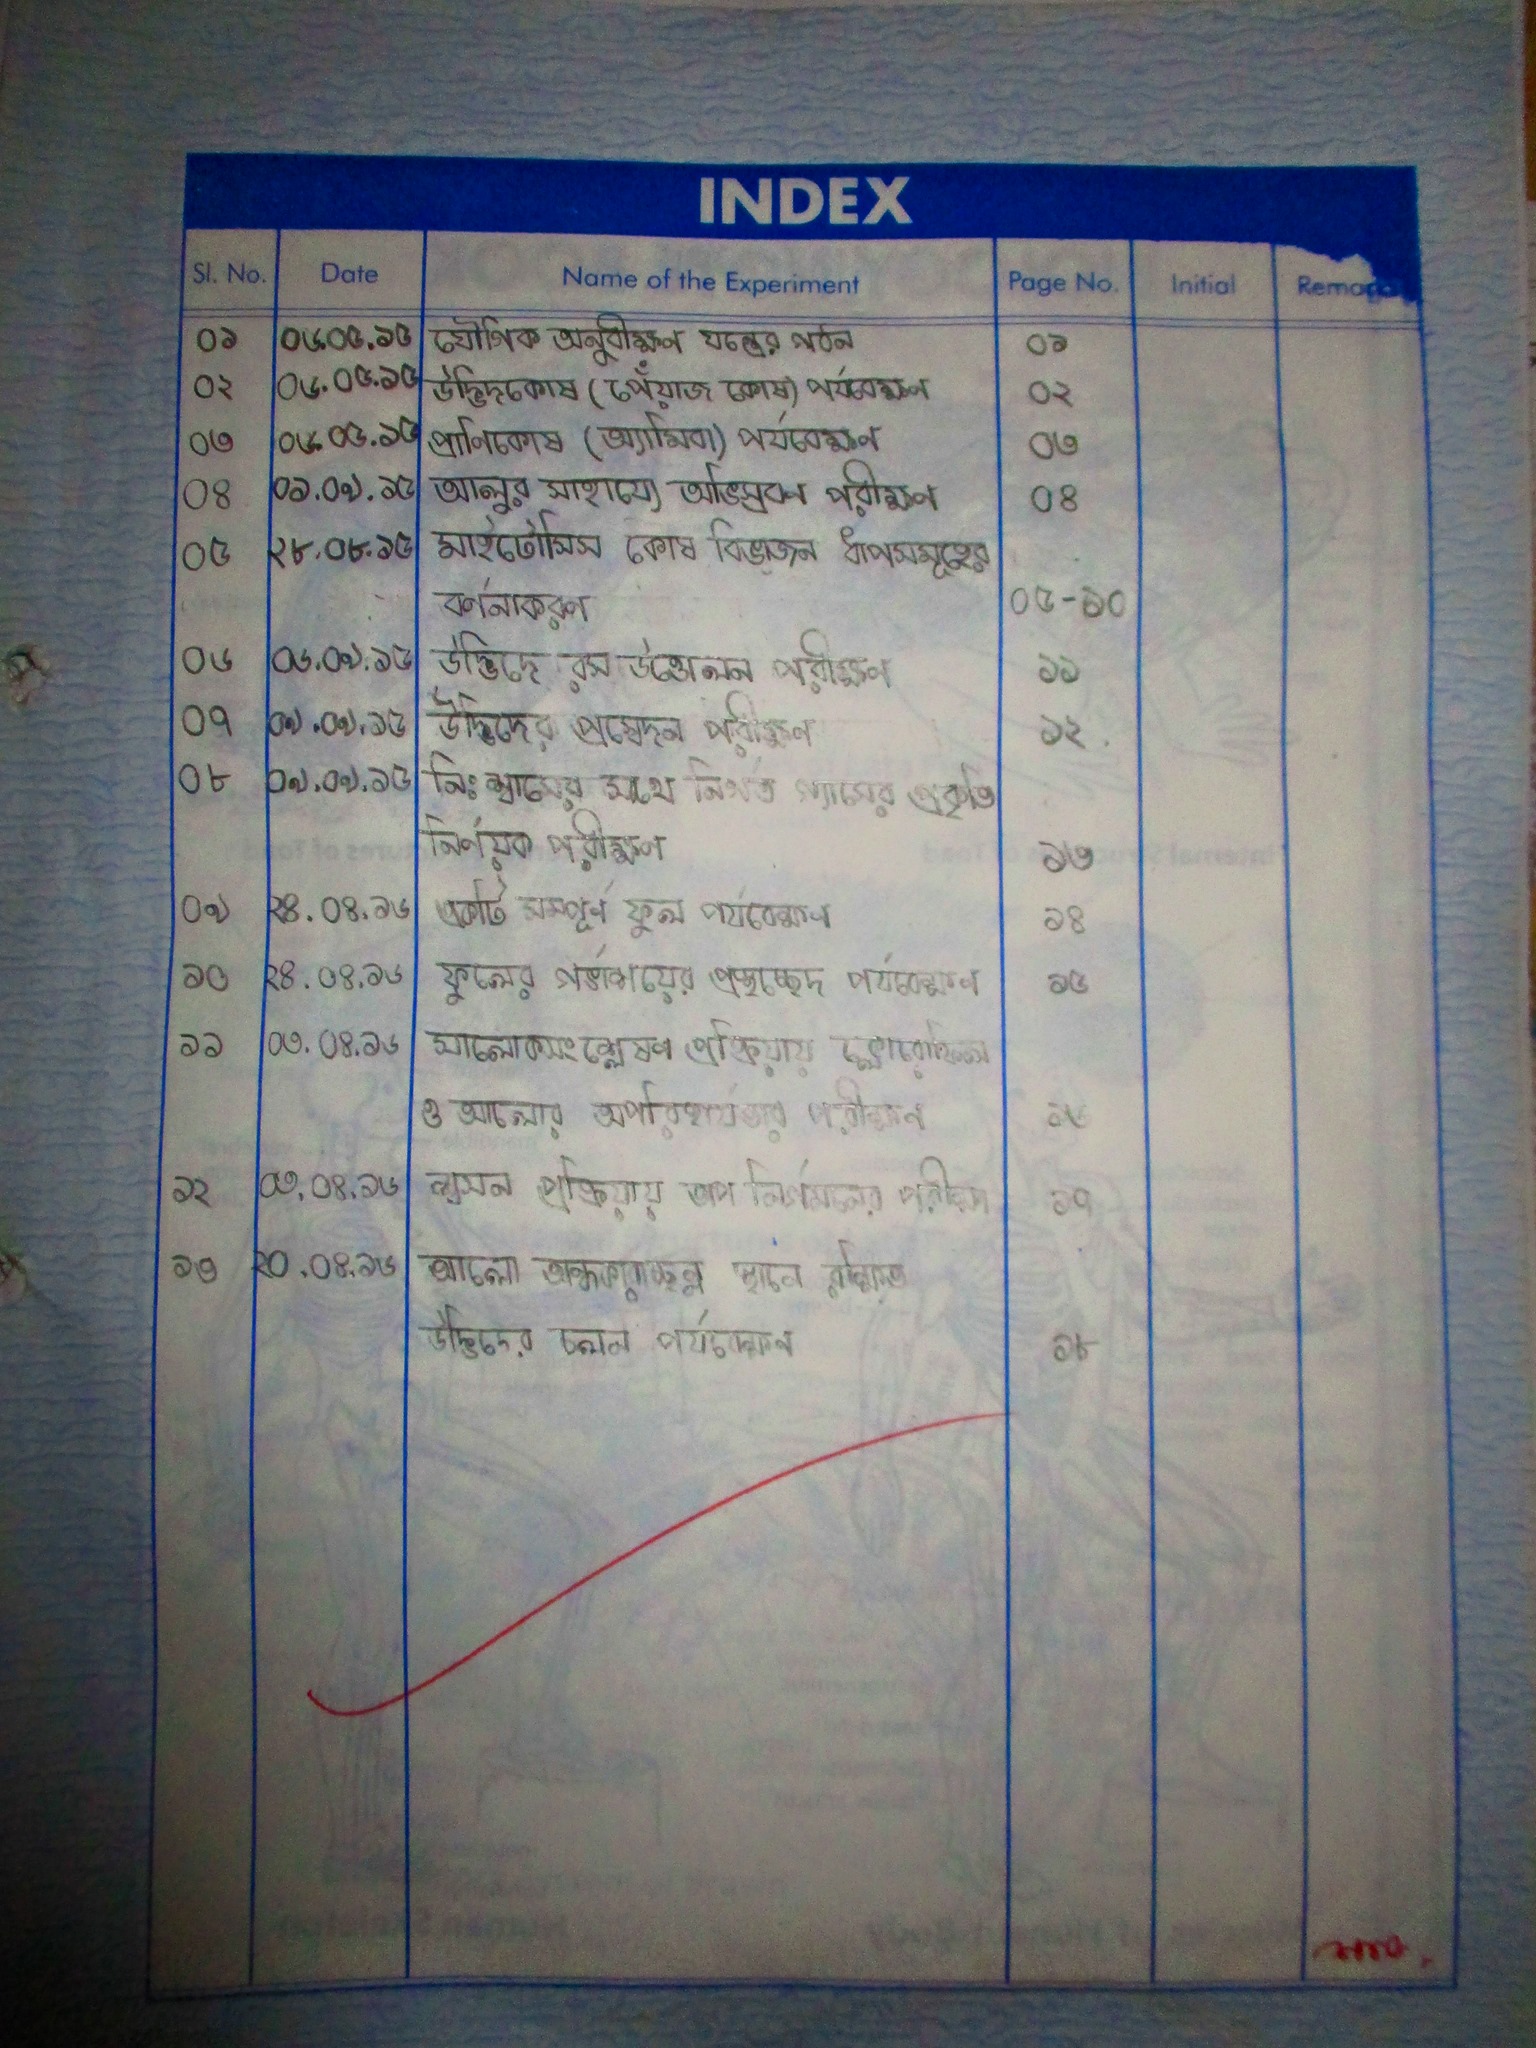 INDEX
Sl. No. Date Name of the Experiment Page No. Initial
০১ ০৬.০৫.১৫ যৌগিক অনুবীক্ষণ যন্ত্রের গঠন ০১
০২ ০৬.০৫.১৫ উদ্ভিদকোষ (পেঁয়াজ কোষ) পর্যবেক্ষণ ০২
০৩ ০৬.০৫.১৫ প্রাণিকোষ (অ্যামিবা) পর্যবেক্ষণ ০৩
০৪ ০১.০৯.১৫ আলুর সাহায্যে অভিস্রবণ পরীক্ষণ ০৪
০৫ ২৮.০৮.১৫ মাইটোসিস কোষ বিভাজন ধাপসমূহের
বর্ণনাকরণ ০৫-১০
০৬ ০৬.০৯.১৫ উদ্ভিদে রস উত্তোলন পরীক্ষণ ১১
০৭ ০৯.০৯.১৫ উদ্ভিদের প্রস্বেদন পরীক্ষণ ১২
০৮ ০৯.০৯.১৫ নিঃশ্বাসের সাথে নির্গত গ্যাসের প্রকৃতি
নির্ণয়ক পরীক্ষণ ১৩
০৯ ২৪.০৪.১৬ একটি সম্পূর্ণ ফুল পর্যবেক্ষণ ১৪
১০ ২৪.০৪.১৬ ফুলের গর্ভাশয়ের প্রস্থচ্ছেদ পর্যবেক্ষণ ১৫
১১ ০৩.০৪.১৬ সালোকসংশ্লেষণ প্রক্রিয়ায় ক্লোরোফিল
ও আলোর অপরিহার্যতার পরীক্ষণ ১৬
১২ ০৩.০৪.১৬ শ্বসন প্রক্রিয়ায় তাপ নির্গমনের পরীক্ষণ ১৭
১৩ ২০.০৪.১৬ আলো অন্ধকারাচ্ছন্ন স্থানে
উদ্ভিদের চলন পর্যবেক্ষণ ১৮